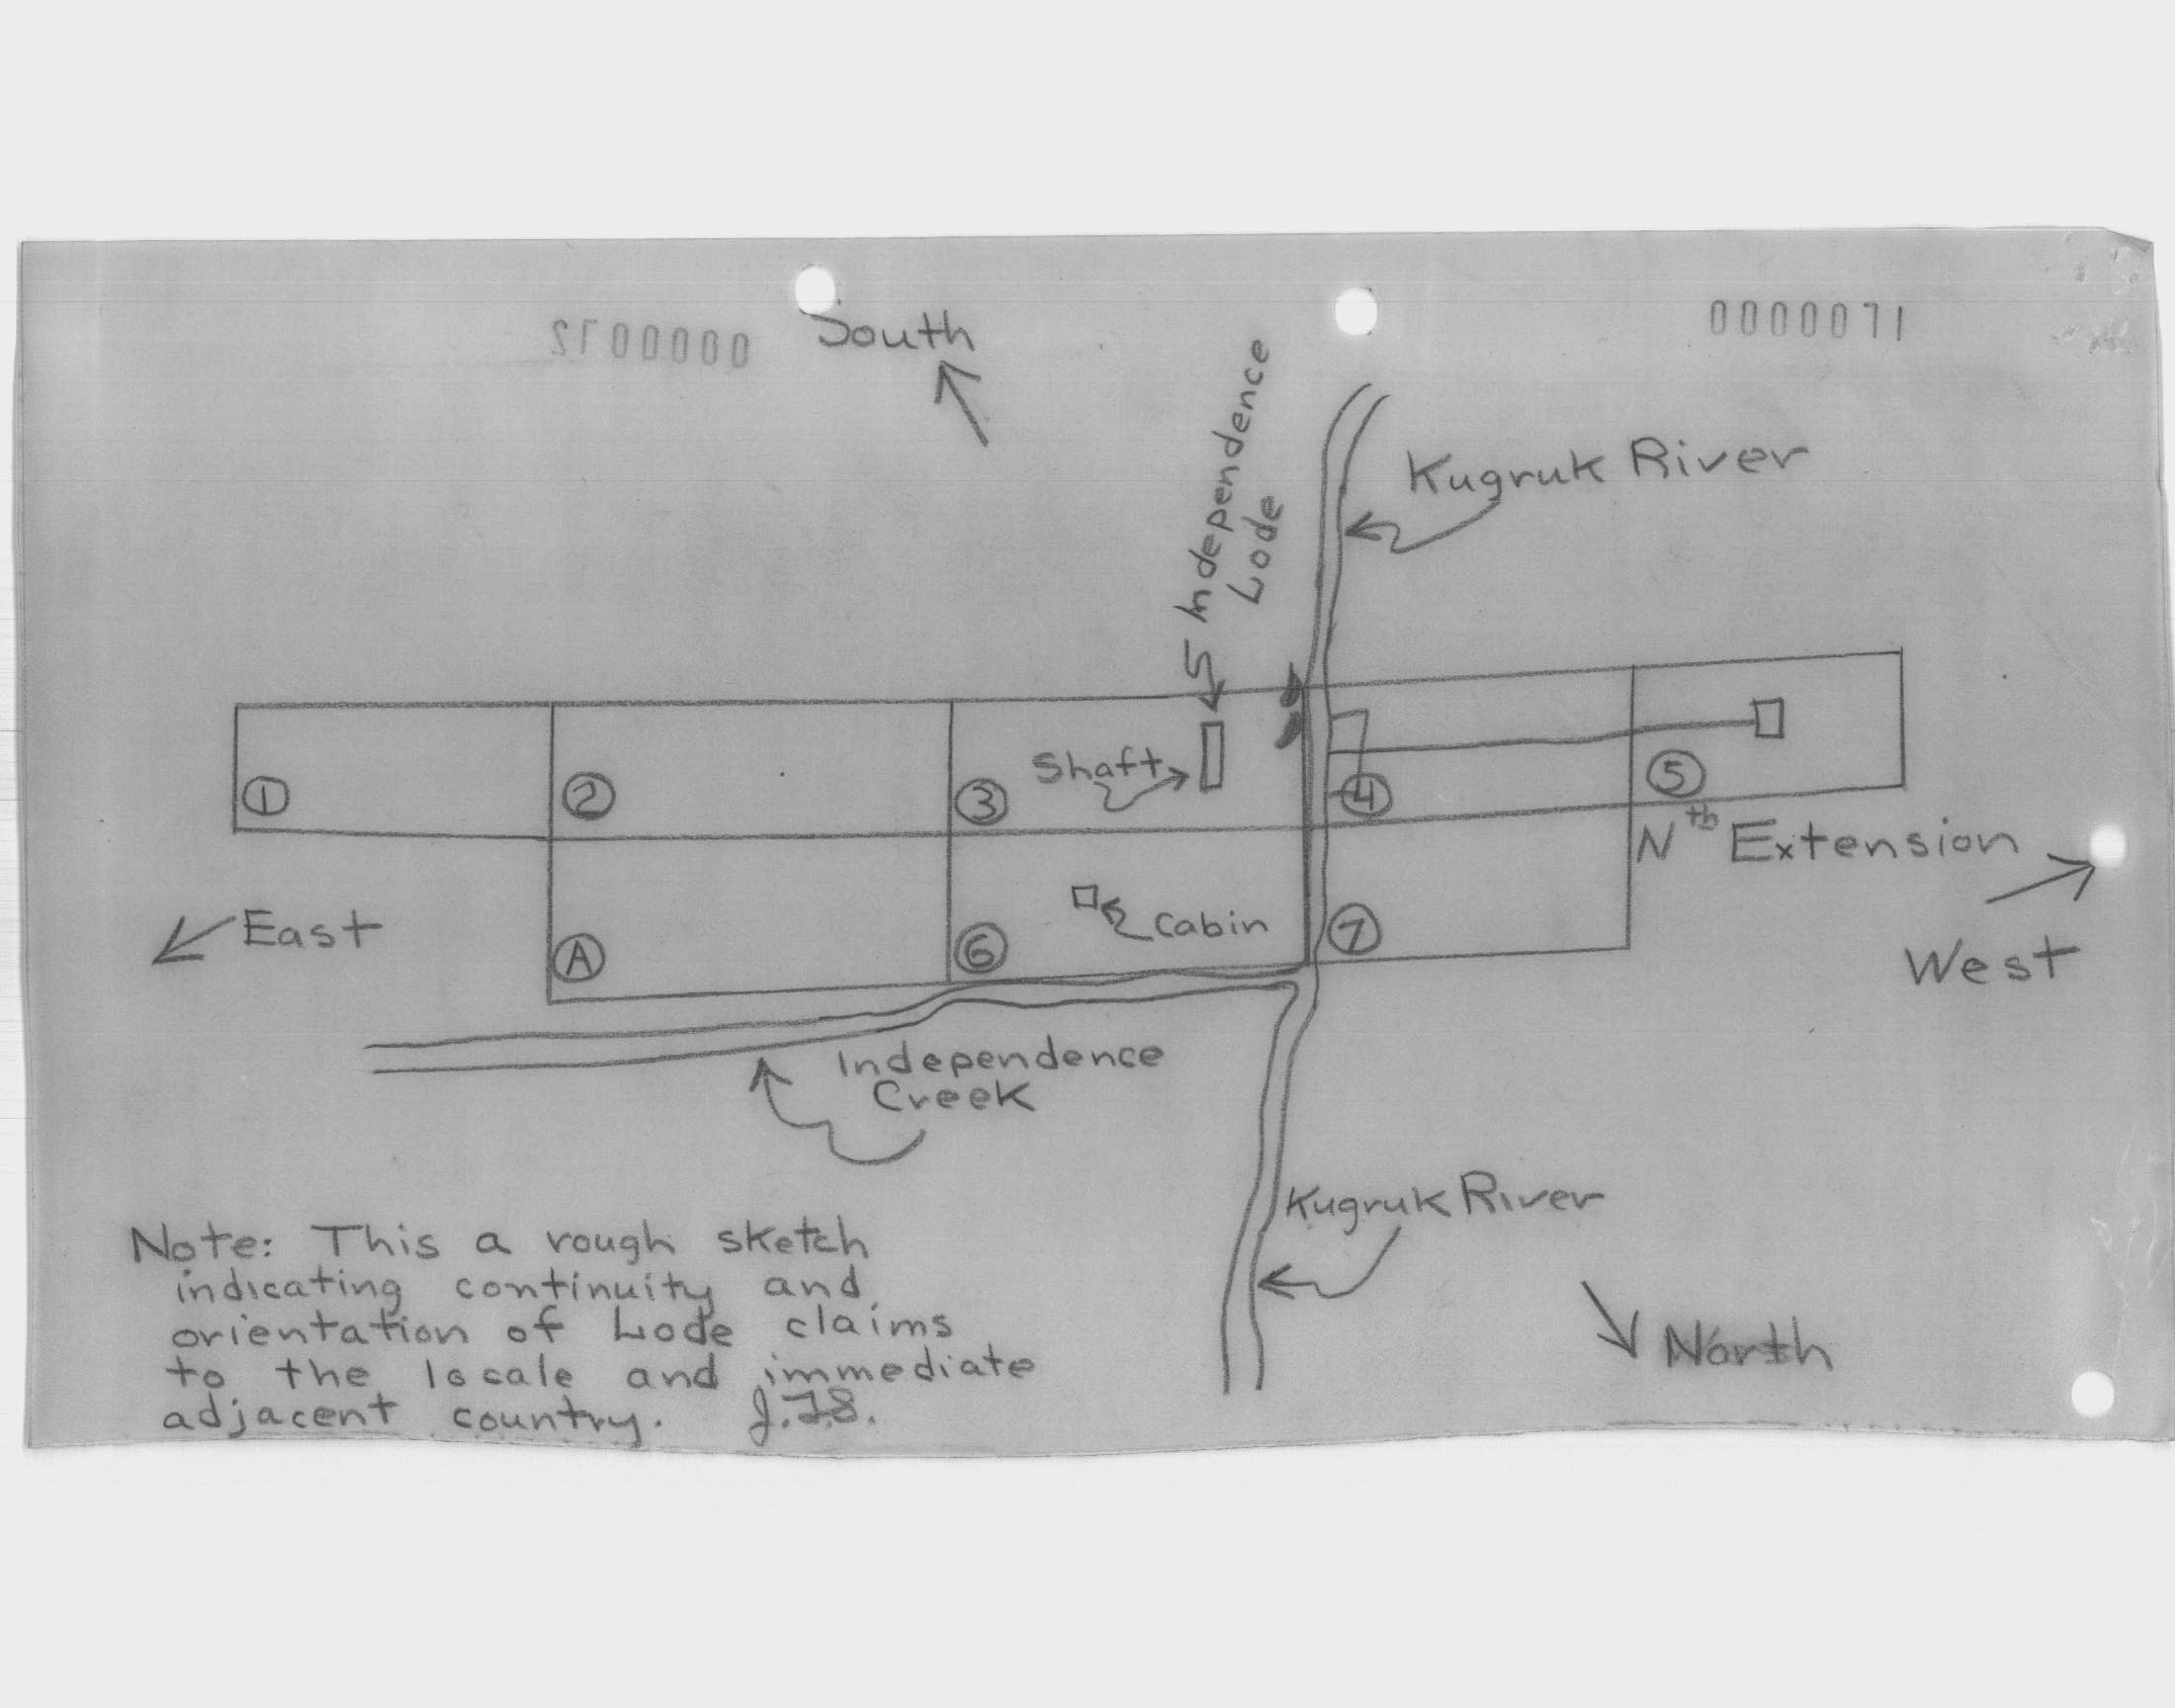 0000071
0000072
South
Independence
Lode
Kugruk River
Shaft
1
2
3
4
5
Nth Extension
East
West
A
6
Cabin
7
Independence
Creek
Kugruk River
North
Note: This a rough sketch
indicating continuity and
orientation of Lode claims
to the locale and immediate
adjacent country. J.F.S.